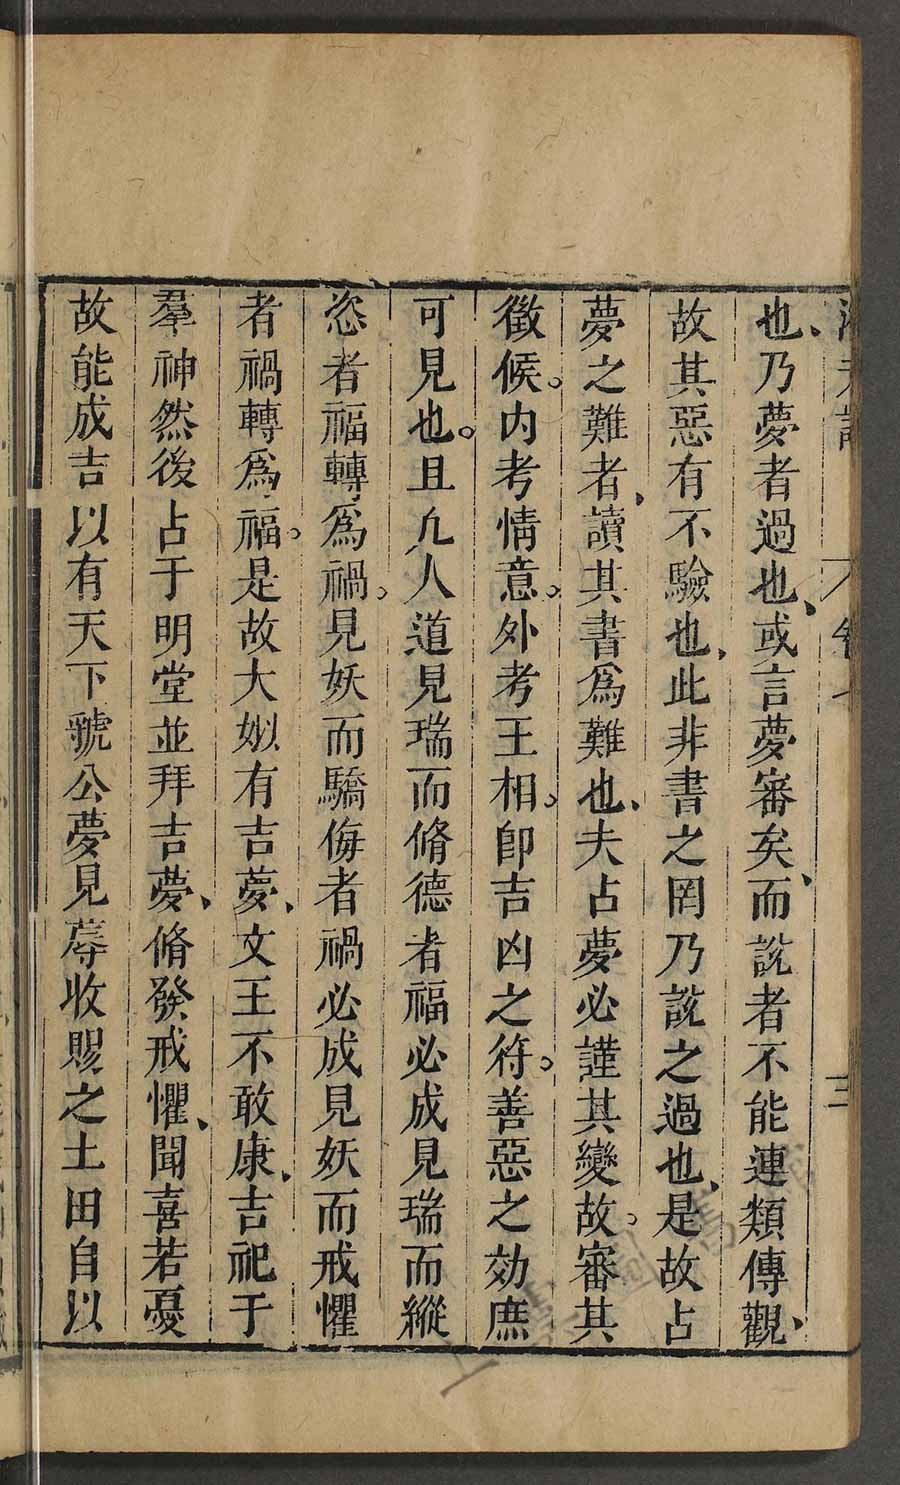 也乃夢者過也或言夢審矣而說者不能連類傳觀
故其惡有不驗也此非書之罔乃說之過也是故占
夢之難者讀其書爲難也夫占夢必謹其變故審其
徵候内考情意外考王相卽吉凶之符善惡之効庶
可見也且凢人道見瑞而脩德者福必成見瑞而縱
恣者福轉爲禍見妖而驕侮者禍必成見妖而戒懼
者禍轉爲福是故大姒有吉夢文王不敢康吉祀于
羣神然後占于明堂並拜吉夢脩發戒懼聞喜若憂
故能成吉以有天下虢公夢見蓐收賜之土田自以